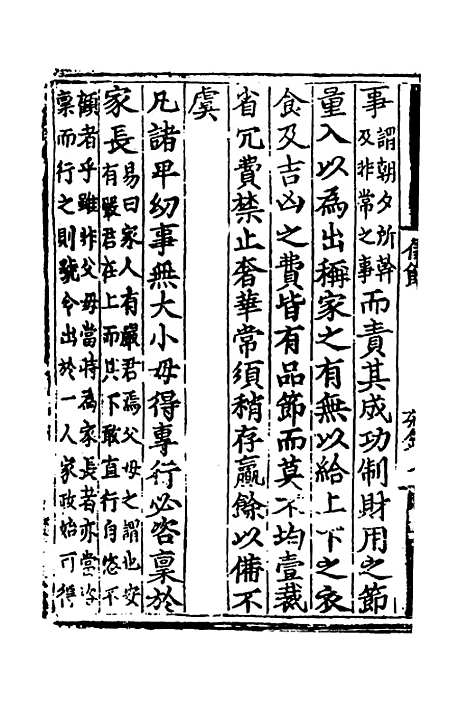 事謂朝夕所幹
及非常之事
而責其成功制財用之節
量入以為出稱家之有無以給上下之衣
食及吉凶之費皆有品節而莫不均壹裁
省冗費禁止奢華常須稍存贏餘以備不
虞
凡諸卑幼事無大小毋得專行必咨稟於
家長易曰家人有嚴君焉父母之謂也安
有嚴君在上而其下敢直行自恣不
顧者乎雖非父母當時為家長者亦當咨
稟而行之則號令出於一人家政始可得